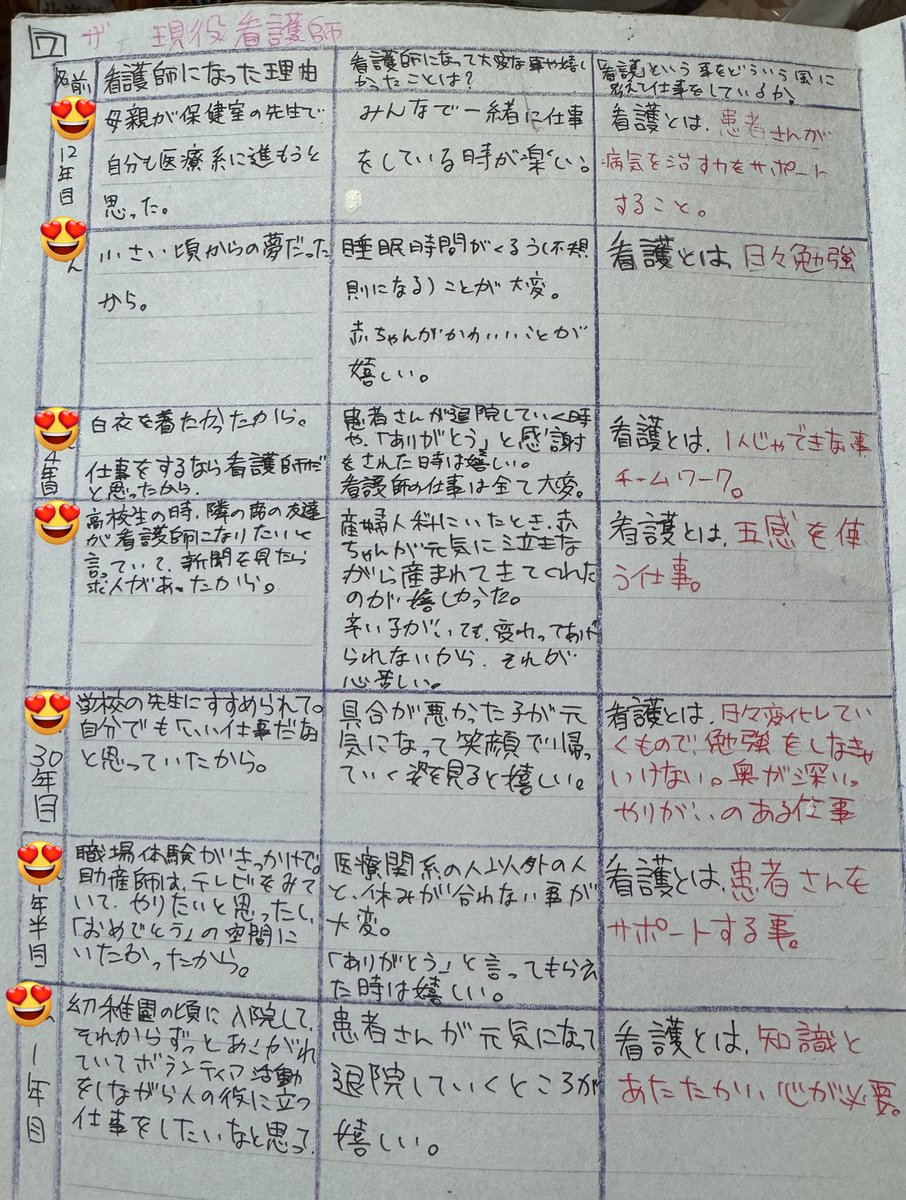 7 ザ 現役看護師
名前
看護師になった理由
看護師になって大変な事や嬉し
かったことは?
「看護」という事をどういう風に
考えて仕事をしているか。
12年目
母親が保健室の先生で
自分も医療系に進もうと
思った。
みんなで一緒に仕事
をしている時が楽しい。
看護とは、患者さんが
病気を治す力をサポート
すること。
ん
小さい頃からの夢だった
から。
睡眠時間がくるう(不規
則になる)ことが大変。
赤ちゃんがかわいいことが
嬉しい。
看護とは、日々勉強
4年目
白衣を着たかったから。
仕事をするなら看護師だ
と思ったから.
患者さんが退院していく時
や、「ありがとう」と感謝
をされた時は嬉しい。
看護師の仕事は全て大変。
看護とは、1人じゃできな事
チームワーク。
高校生の時、隣の席の友達
が看護師になりたいと
言っていて、新聞を見たら
求人があったから。
産婦人科にいたとき、赤
ちゃんが元気に泣きな
がら産まれてきてくれた
のが嬉しかった。
辛い子がいても、変わってあげ
られないから、それが
心苦しい。
看護とは、五感を使
う仕事。
30年目
学校の先生にすすめられて。
自分でも「いい仕事だな」
と思っていたから。
具合が悪かった子が元
気になって笑顔で帰っ
ていく姿を見ると嬉しい。
看護とは、日々変化してい
くもので、勉強をしなきゃ
いけない。奥が深い。
やりがいのある仕事
年半目
職場体験がきっかけで。
助産師は、テレビをみて
いて、やりたいと思ったし、
「おめでとう」の空間に
いたかったから。
医療関系の人以外の人
と、休みが合わない事が
大変。
「ありがとう」と言ってもらえ
た時は嬉しい。
看護とは、患者さんを
サポートする事。
1年目
幼稚園の頃に入院して、
それからずっとあこがれ
ていてボランティア活動
をしながら人の役に立つ
仕事をしたいなと思って
患者さんが元気になって
退院していくところが
嬉しい。
看護とは、知識と
あたたかい心が必要。